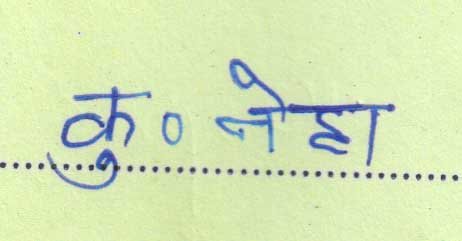 कु० नेहा